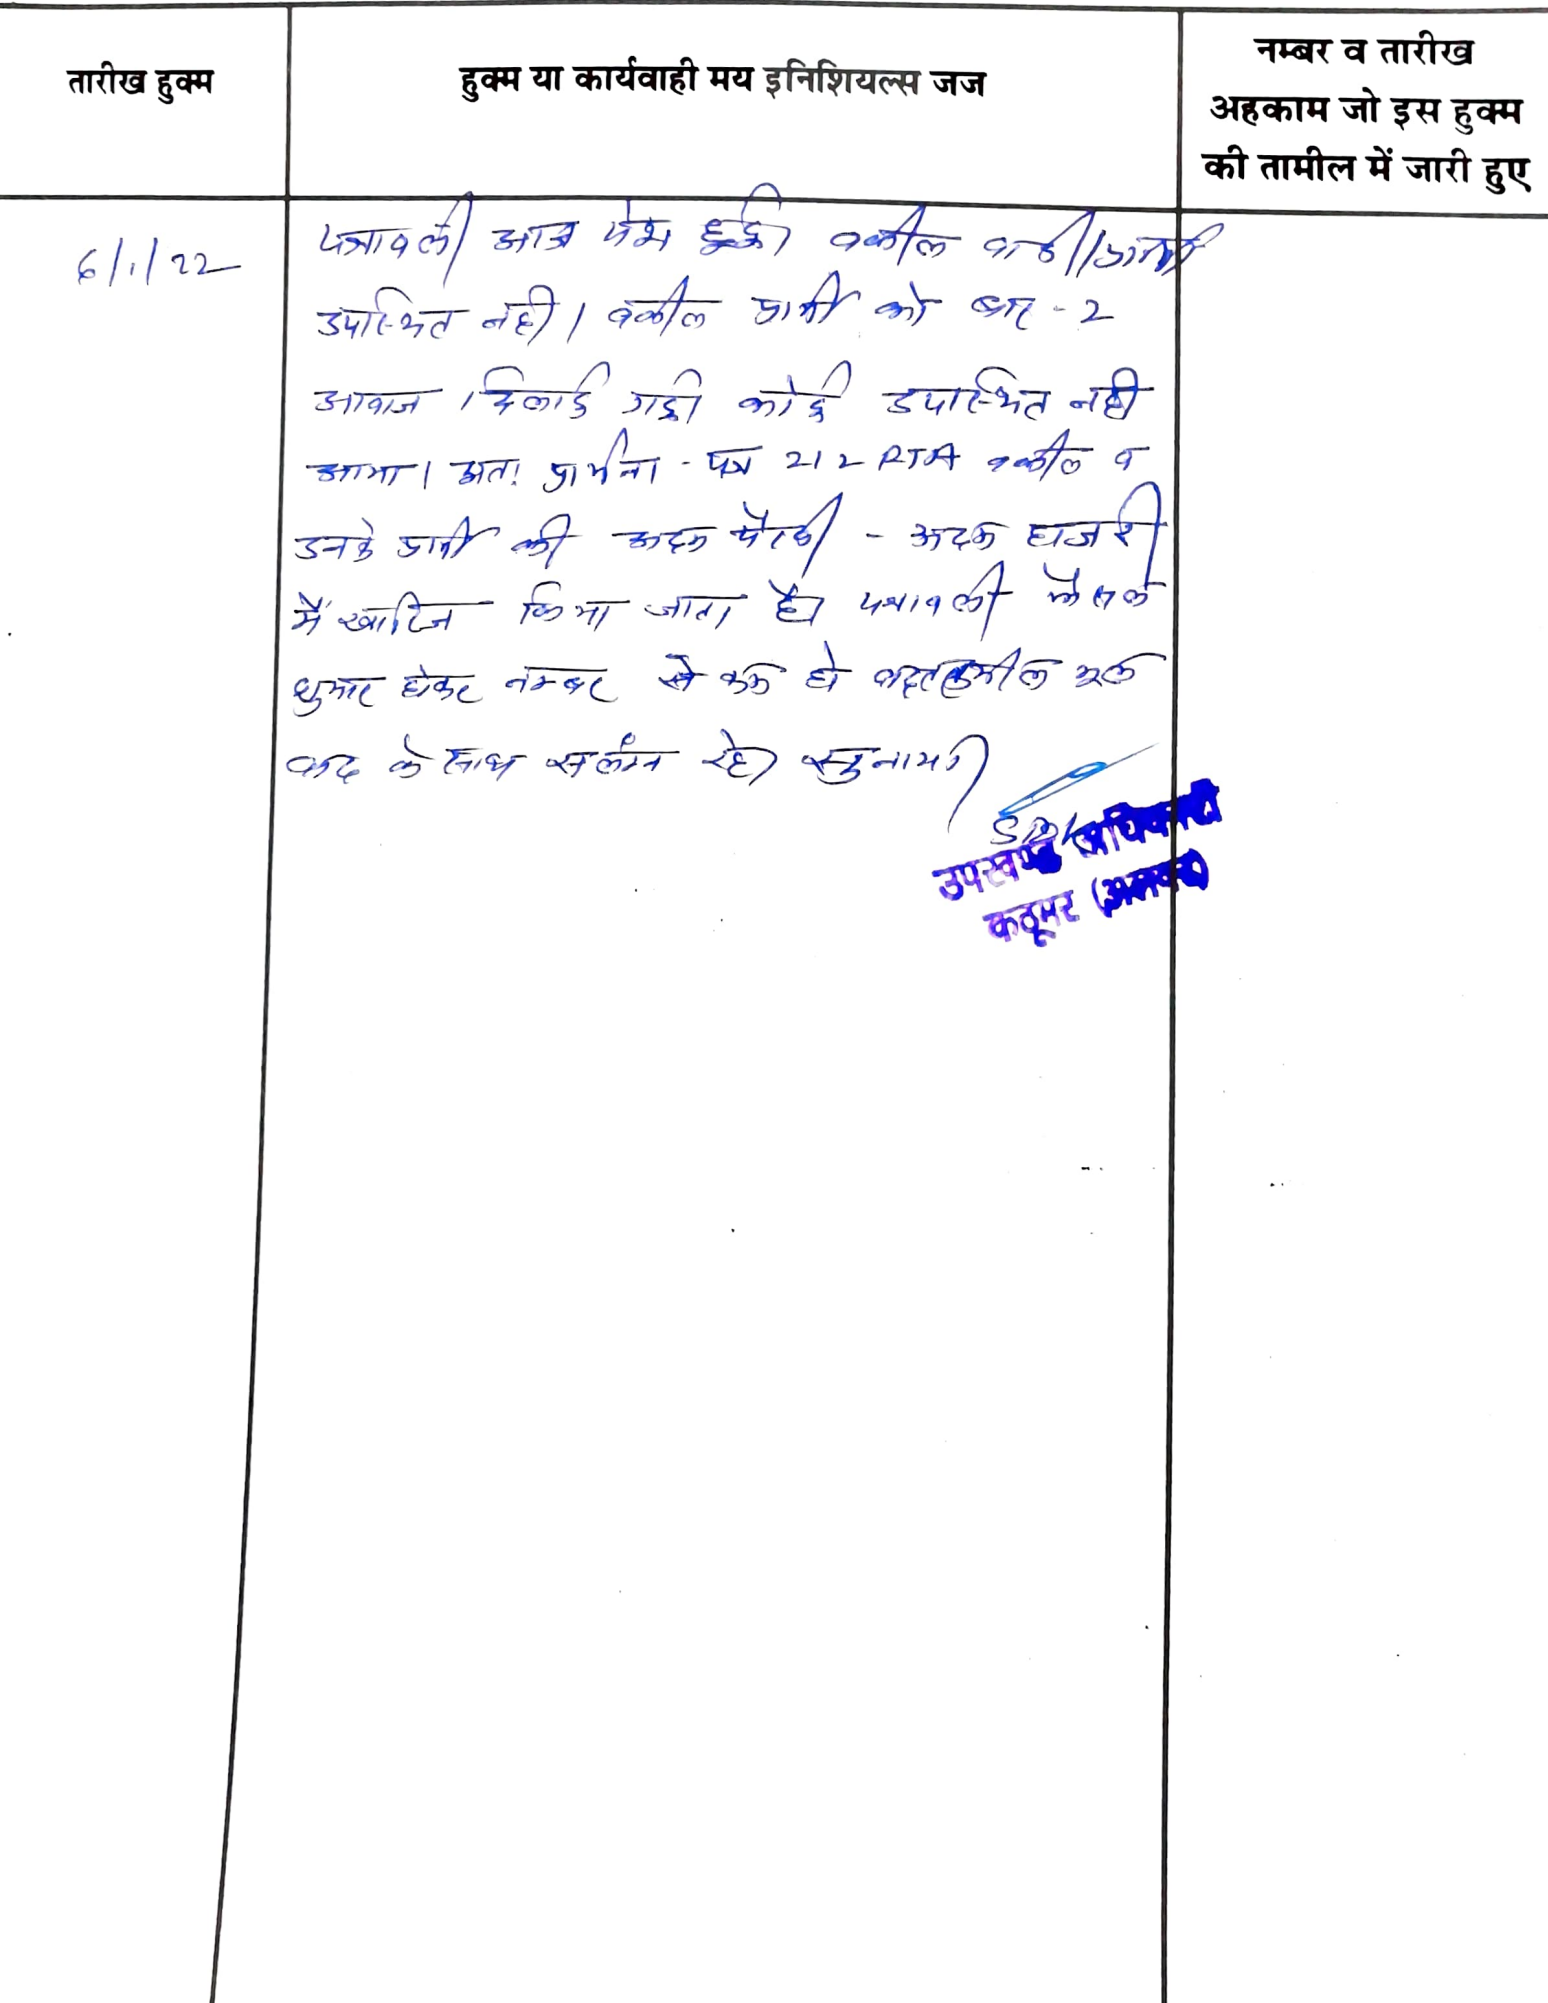 तारीख हुक्म
हुक्म या कार्यवाही मय इनिशियल्स जज
नम्बर व तारीख
अहकाम जो इस हुक्म
की तामील में जारी हुए
6/1/22
पत्रावली आज पेश हुई। वकील वादी/प्रार्थी
उपस्थित नही। वकील प्रार्थी को बार-2
आवाज दिलाई गई। कोई उपस्थित नही
आया। अतः प्रार्थना-पत्र 212 RTA वकील व
उनके प्रार्थी की अदम पैरवी - अदम हाजरी
में खारिज किया जाता है। पत्रावली फैसल
शुमार होकर नम्बर से कम हो बादतकमील मूल
वाद के साथ सलंग्न रहे।
उपखण्ड अधिकारी
कठूमर (अलवर)